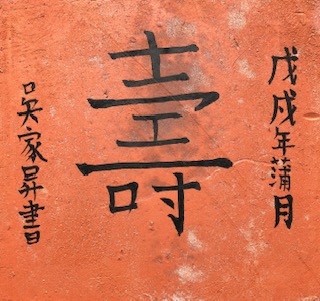 戊戌年蒲月
壽
吳家昇書